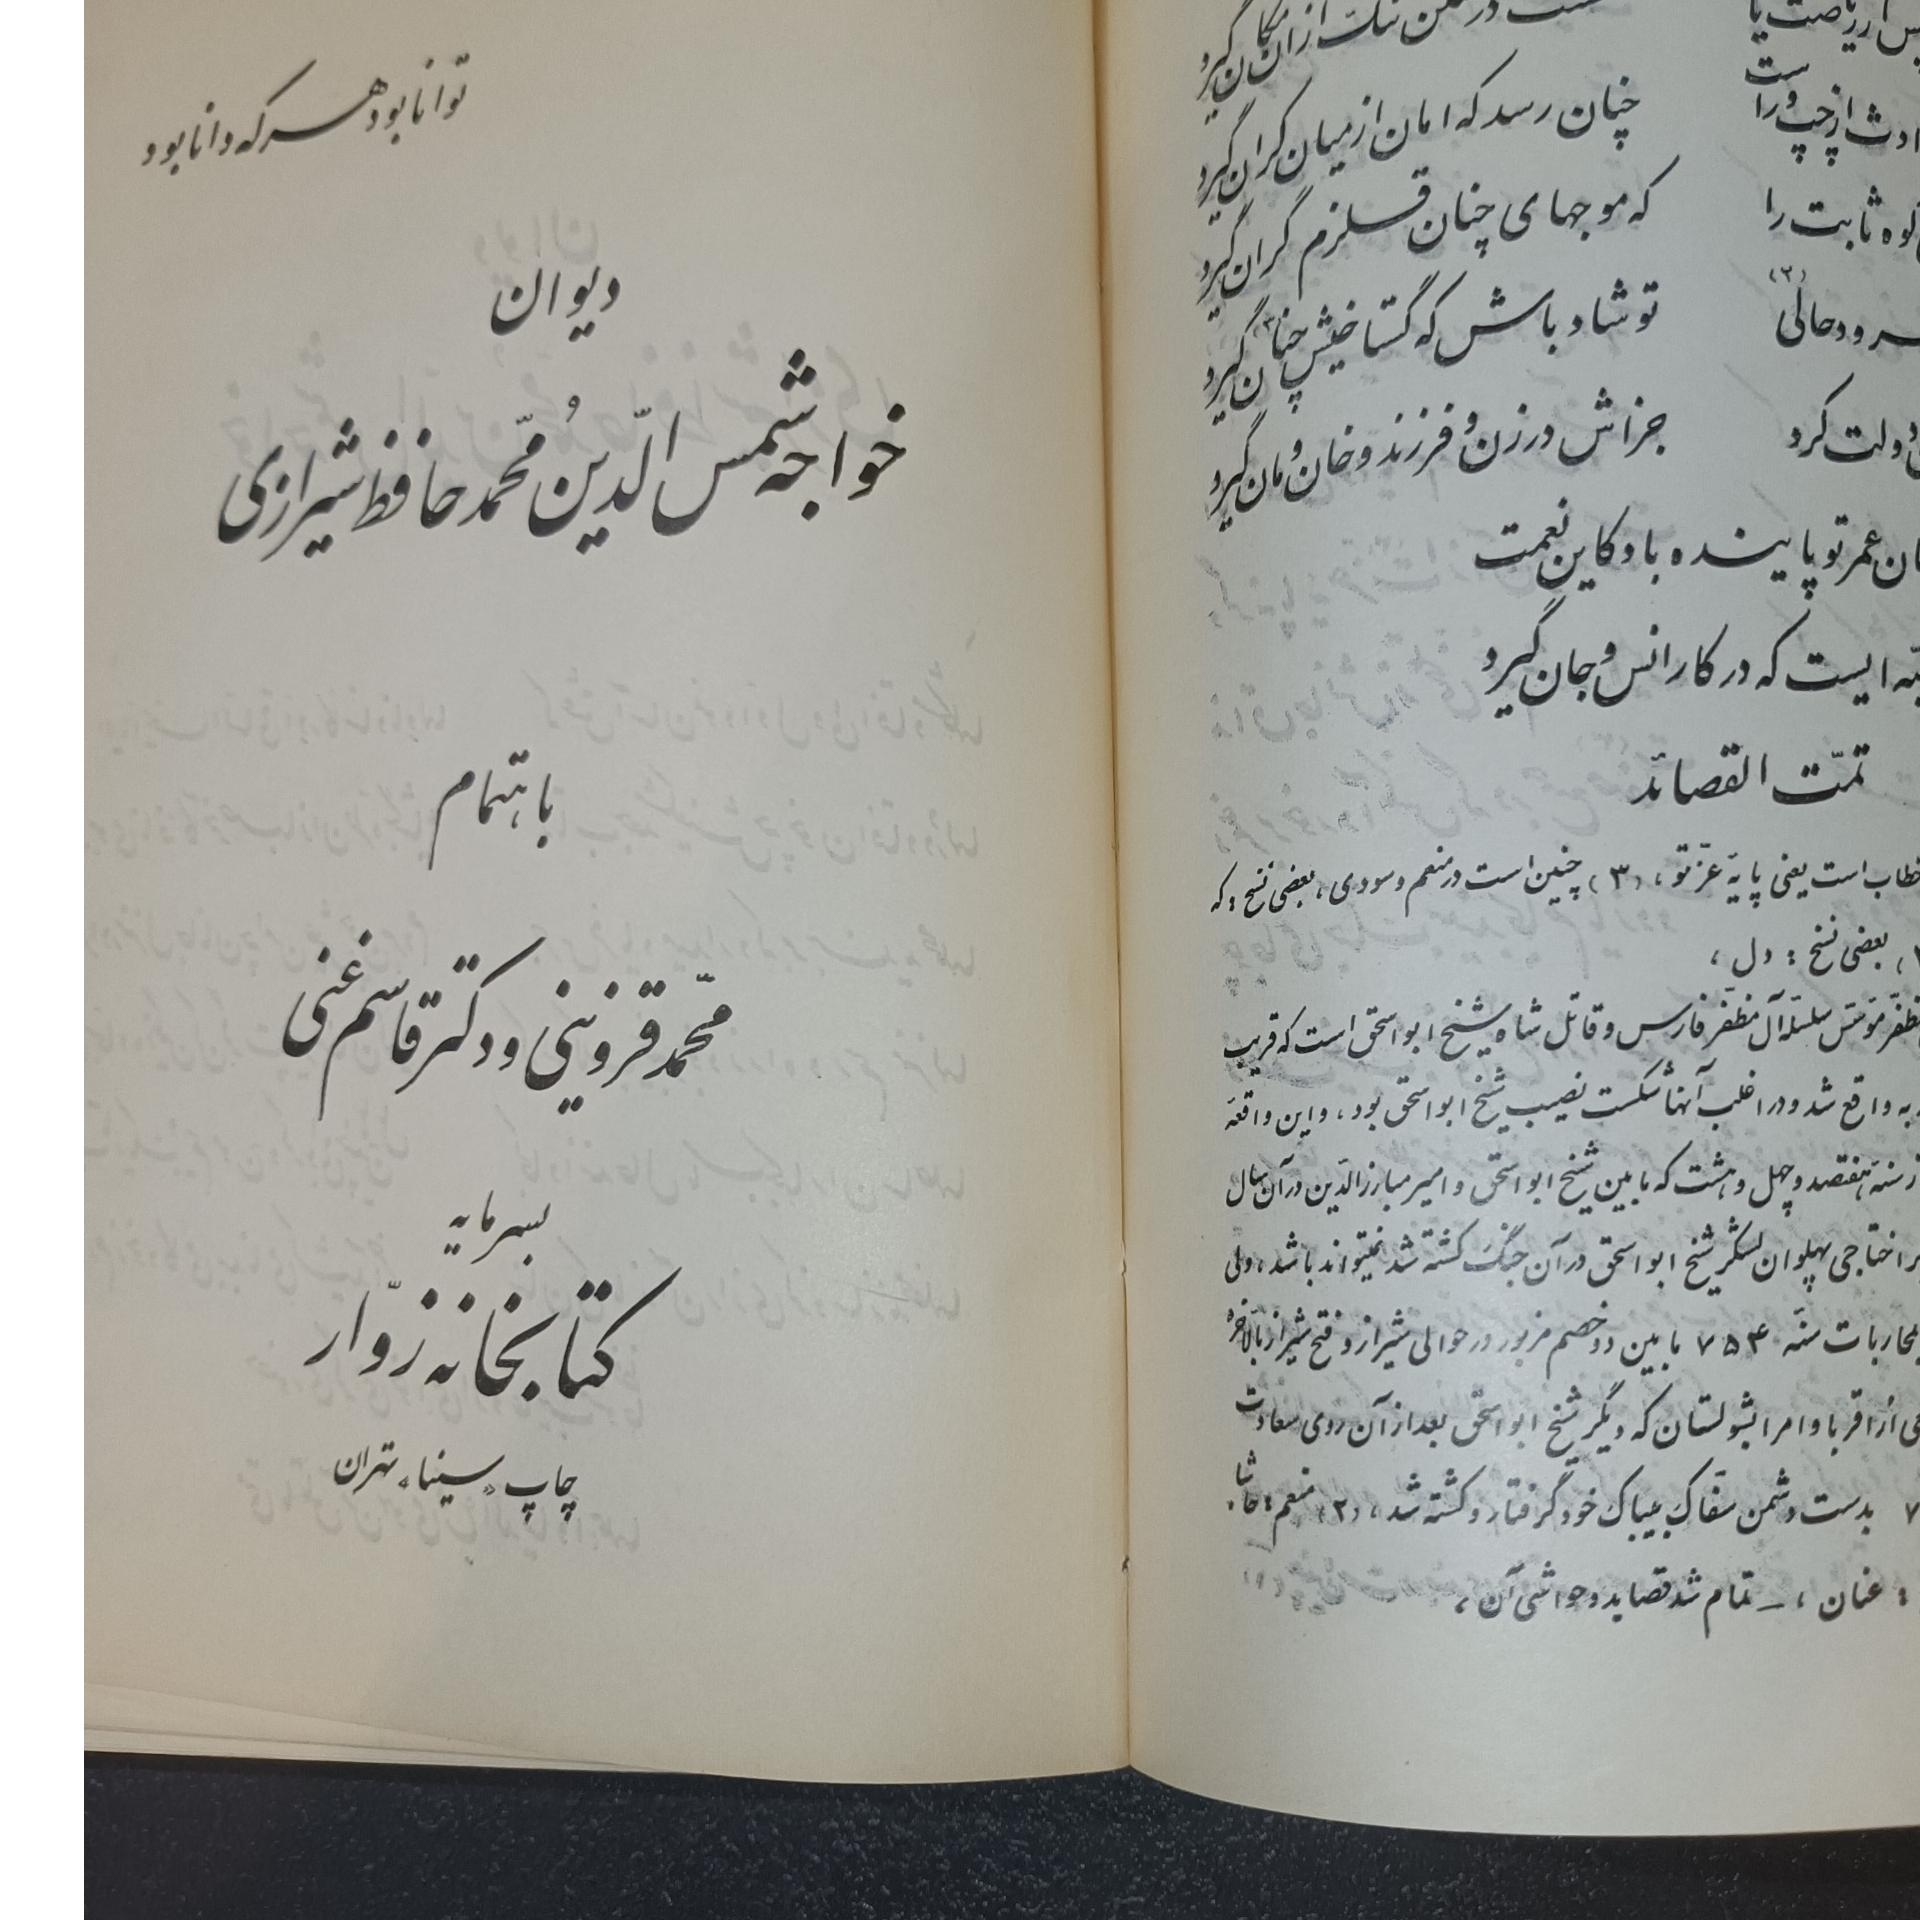 گیرد
ست
چنان رسد که امان از میان کران گیرد
از چپ و راست
که موجهای چنان قلزم گران گیرد
کوه ثابت را
تو شاد باش که گستاخیش چنان (۳) گیرد
حالی (۲)
جزاش در زن و فرزند و خان و مان گیرد
دولت کرد
عمر تو پاینده باد کاین نعمت
ایست که در کار انس و جان گیرد
تمّت القصائد
خطاب است یعنی پایهٔ عزّ تو ، (۳) چنین است در منعم و سودی ، بعضی نسخ : که
بعضی نسخ : دل ،
مظفّر مؤسّس سلسلهٔ آل مظفّر فارس و قاتل شاه شیخ ابو اسحق است که قریب
به واقع شد و در اغلب آنها شکست نصیب شیخ ابو اسحق بود ، و این واقعهٔ
سنهٔ هفتصد و چهل و هشت که ما بین شیخ ابو اسحق و امیر مبارز الدّین در آن سال
اختاجی پهلوان لشکر شیخ ابو اسحق در آن جنگ کشته شد نمیتواند باشد ، ولی
محاربات سنهٔ ۷۵۴ ما بین دو خصم مزبور در حوالی شیراز و فتح شیراز بالاخره
از اقربا و امرا بشولستان که دیگر شیخ ابو اسحق بعد از آن روی سعادت
۷ بدست دشمن سفّاک بیباک خود گرفتار و کشته شد ، (۲) منعم : حاشا
: عنان ، ـ تمام شد قصاید و حواشی آن ،
توانا بود هر که دانا بود
دیوان
خواجه شمس الدّین محمّد حافظ شیرازی
باهتمام
محمّد قزوینی و دکتر قاسم غنی
بسرمایه
کتابخانه زوّار
چاپ «سینا» تهران